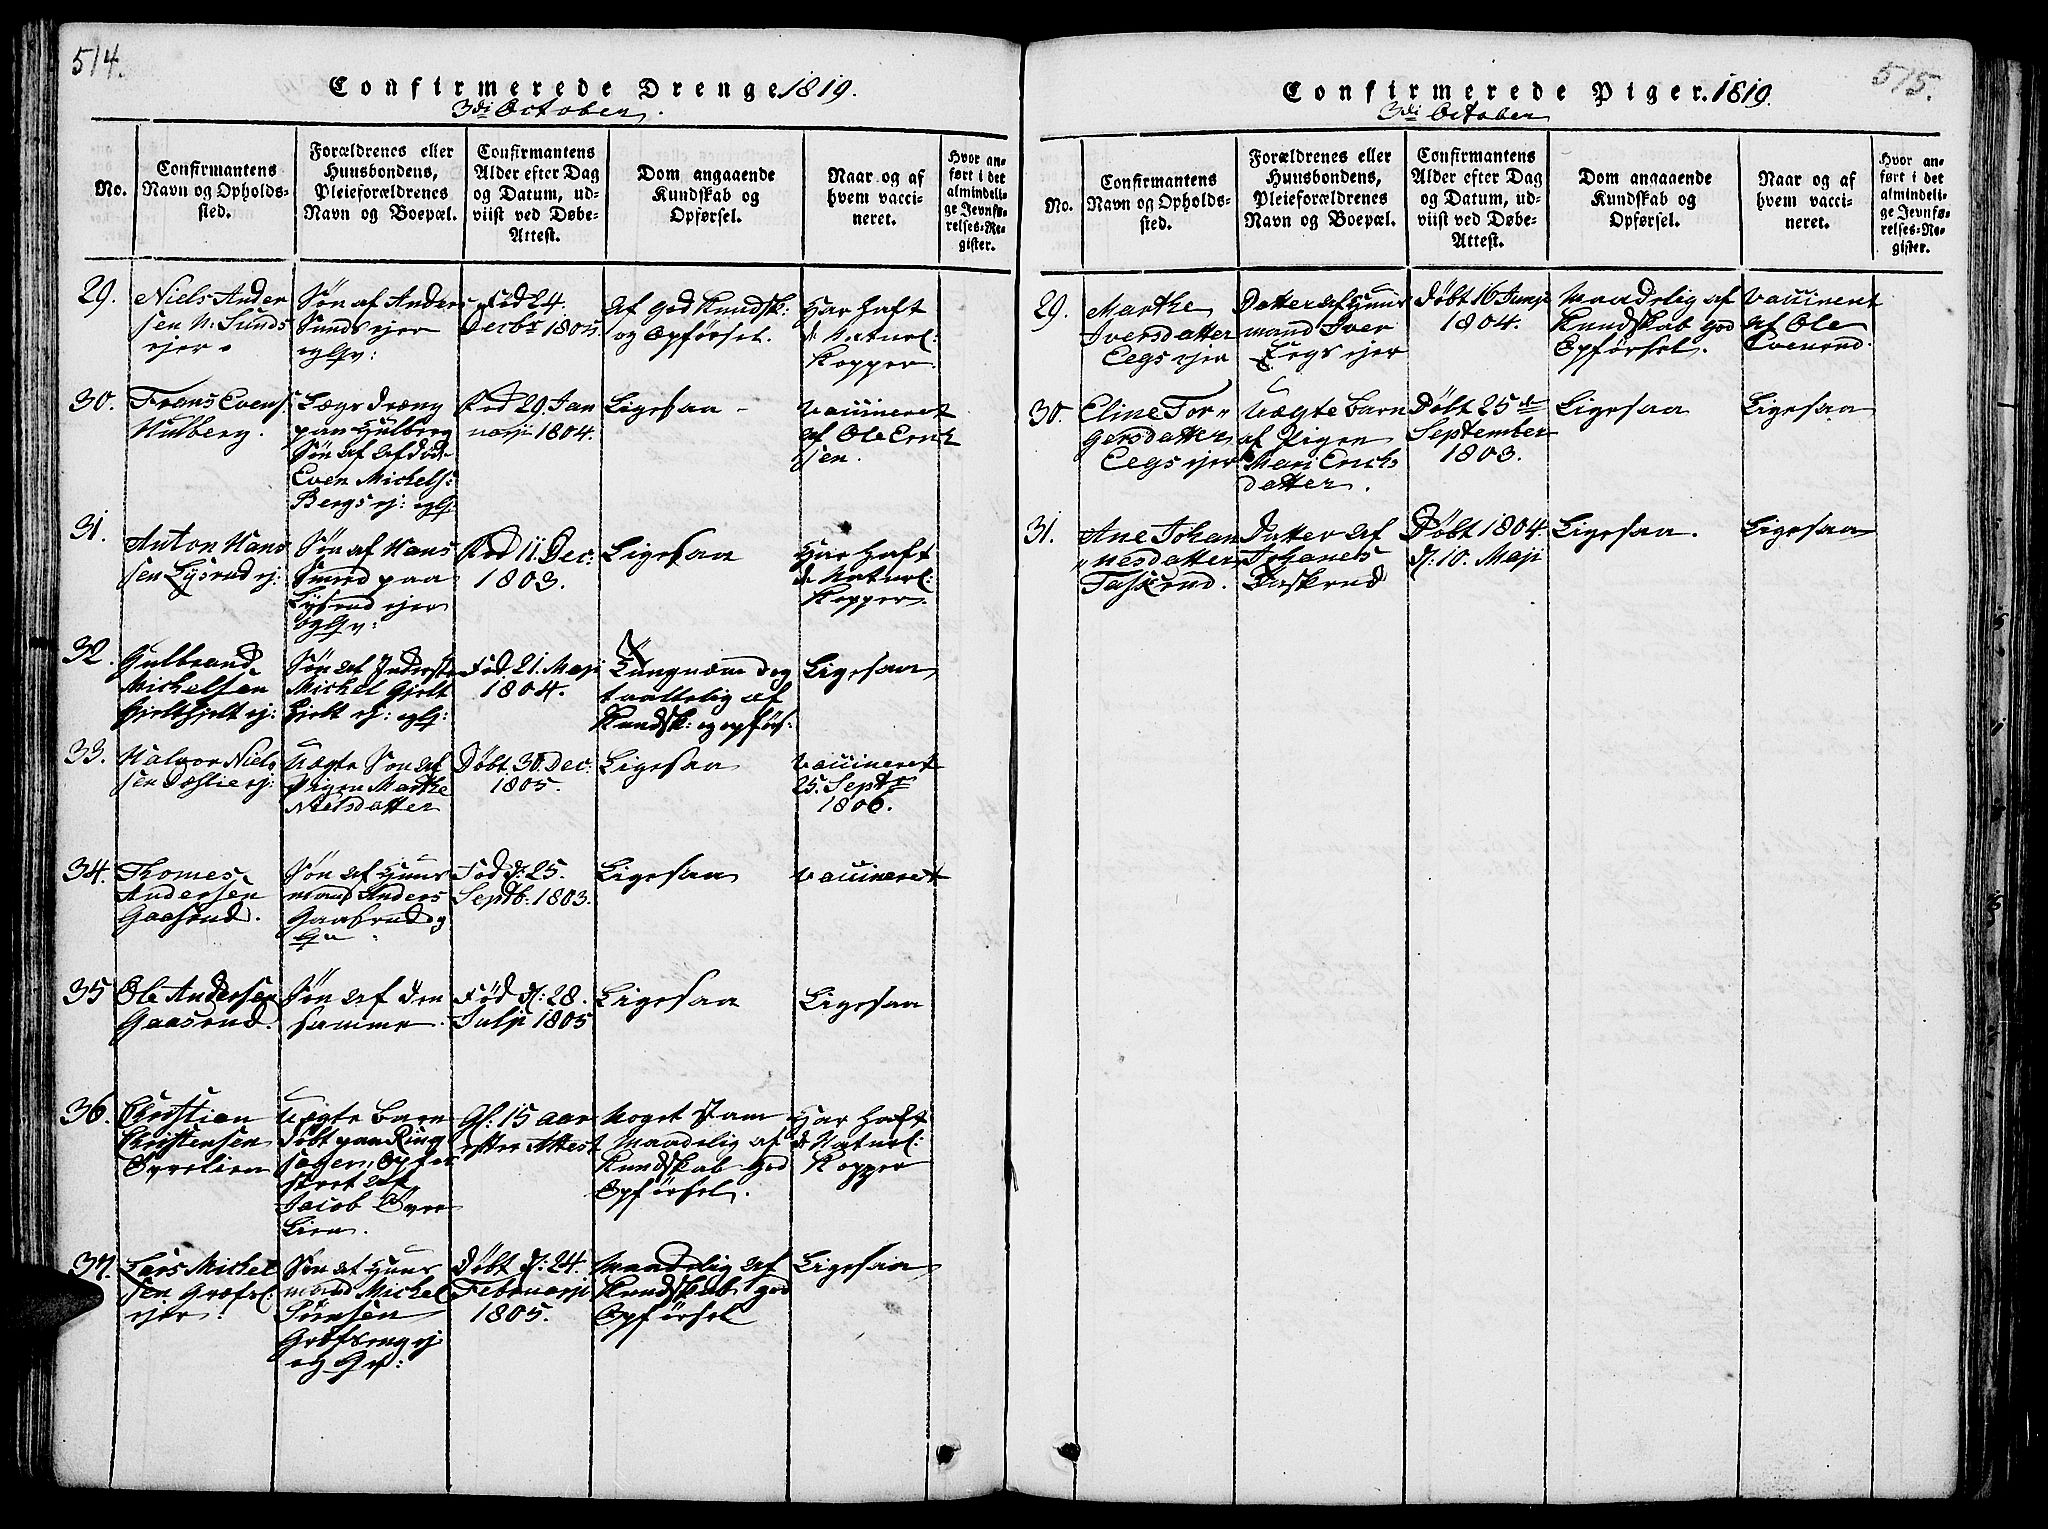 514.
Confirmerede Drenge 1819.
3di October.
No.
Confirmantens
Navn og Opholds-
sted.
Forældrenes eller
Huusbondens,
Pleieforældrenes
Navn og Boepæl.
Confirmantens
Alder efter Dag
og Datum, ud-
viist ved Døbe-
Attest.
Dom angaaende
Kundskab og
Opførsel.
Naar og af
hvem vacci-
neret.
Hvor an-
ført i det
almindeli-
ge Jevnfø-
relses-Re-
gister.
29.
Niels Ander
sen N: Sunds
ejer.
Søn af Anders
Sunds ejer
og Gv:
Fød 24
Decbr 1805.
af god Kundsk:
og Opførsel.
Har haft
d: Naturl:
Kopper.
30.
Frans Evens:
Hulberg.
Lægs dræng
paa Hulberg
Søn af afdøde
Even Michels:
Bergs ej: og G:
Fød 29 Jan
uarji 1804.
Ligesaa -
vaccineret
af Ole Erich
sen.
31.
Anton Hans
sen Lysrud ej:
Søn af Hans
Smed paa
Lysrud ejer
og Gv:
Fød 11. Dec:
1803.
Ligesaa
Har haft
d: Naturl:
Kopper.
32.
Gulbrand
Michelsen
Gjelthjelt ej:
Søn af Inderste
Michel Gjelt
hjelt ej: og G:
Fød 21. Maji
1804.
taaltelig af
Kundsk: og opførs:
Ligesaa
33.
Halvor Niel
sen Vestlie ej:
Uægte Søn af
Pigen Marthe
Nielsdatter
Døbt 30 Dec:
1805.
Ligesaa
vaccineret
25. Septr
1806.
34.
Thomes
Andersen
Gaasrud.
Søn af Huus
mand Anders
Gaasrud og
Gv
Fød d: 25.
Septb: 1803.
Ligesaa
vaccineret
35
Ole Andersen
Gaasrud.
Søn af den
samme.
Fød d: 28.
Julji 1805
Ligesaa
Ligesaa
36.
Christian
Christensen
Øvrelien
Uægte Barn
døbt paa Ring
sagen, Opfos
stret af
Jacob Øvre
Lien.
Gl: 15 aar
efter Attest
Noget Stam
Maadelig af
Kundskab god
Opførsel.
Har haft
d: Naturl:
Kopper
37.
Lars Michel
sen Græfs:
ejer.
Søn af Huus
mand Michel
Sørnsen
Græfseng ej
og Gv:
Døbt d: 24.
Februarji
1805.
Maadelig af
Kundskab god
Opførsel
Ligesaa
515.
Confirmerede Piger. 1819.
3di October
No.
Confirmantens
Navn og Opholds-
sted.
Forældrenes eller
Huusbondens,
Pleieforældrenes
Navn og Boepæl.
Confirmantens
Alder efter Dag
og Datum, ud-
viist ved Døbe-
Attest.
Dom angaaende
Kundskab og
Opførsel.
Naar og af
hvem vacci-
neret.
Hvor an-
ført i det
almindeli-
ge Jevnfø-
relses-Re-
gister.
29.
Marthe
Iversdatter
Eegs ejer
Datter af Huus
mand Iver
Eegs ejer
Døbt 16 Junji
1804.
Maadelig af
Kundskab god
Opførsel.
Vaccineret
af Ole
Evenrud.
30.
Eline Tor-
gersdatter
Eegs ejer
Uægte Barn
af Pigen
Mari Erichs
datter.
Døbt 25de
September
1803.
Ligesaa
Ligesaa
31.
Ane Johan
nesdatter
Taskerud.
Datter af
Johanes
Taskerud
Døbt 1804.
d: 10. Maji
Ligesaa.
Ligesaa